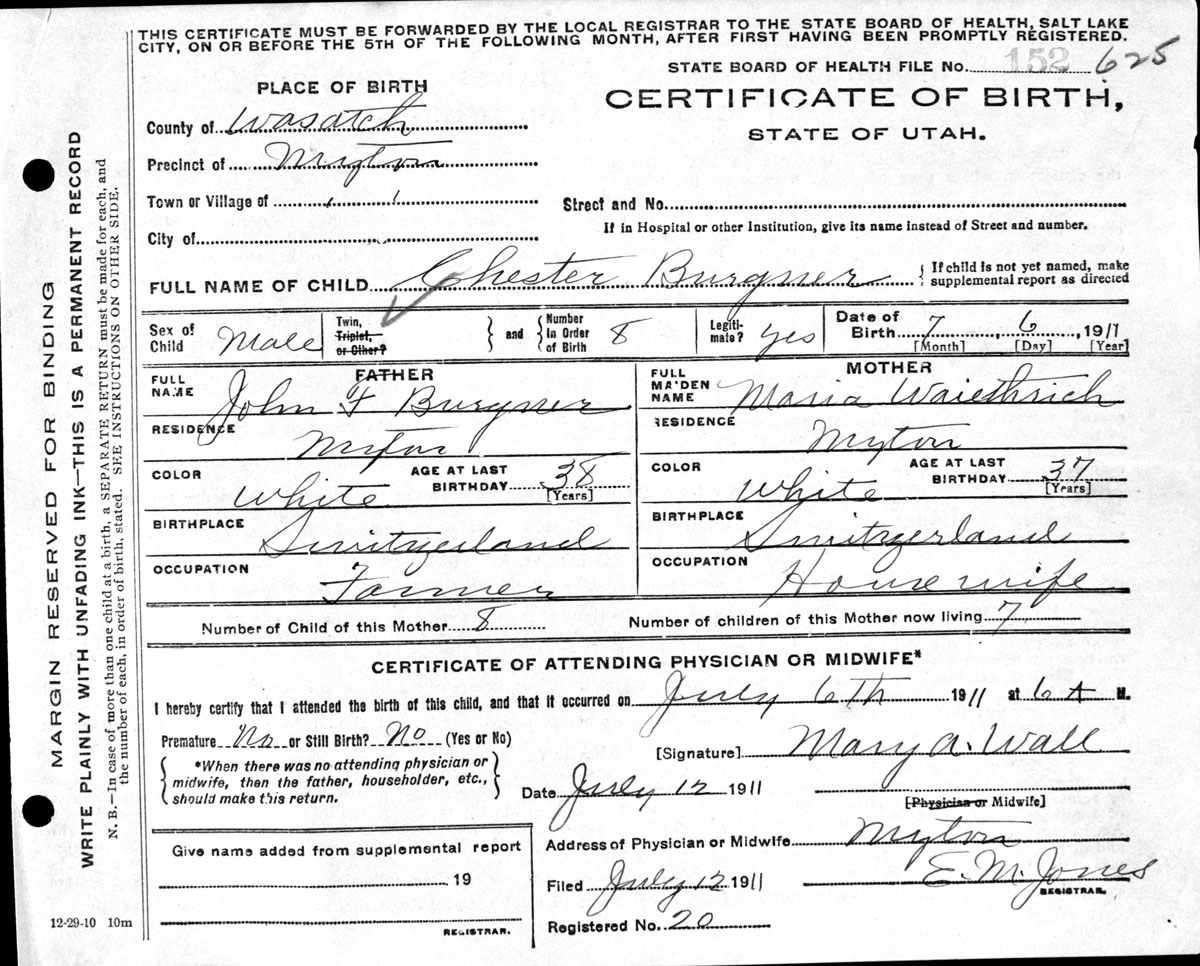 THIS CERTIFICATE MUST BE FORWARDED BY THE LOCAL REGISTRAR TO THE STATE BOARD OF HEALTH, SALT LAKE
CITY, ON OR BEFORE THE 5TH OF THE FOLLOWING MONTH, AFTER FIRST HAVING BEEN PROMPTLY REGISTERED.
STATE BOARD OF HEALTH FILE No. 152 625
PLACE OF BIRTH
CERTIFICATE OF BIRTH,
STATE OF UTAH.
County of Wasatch
Precinct of Myton
Town or Village of " "
Street and No.
City of
If in Hospital or other Institution, give its name instead of Street and number.
FULL NAME OF CHILD Chester Burgner { If child is not yet named, make
supplemental report as directed
Sex of
Child Male
Twin,
Triplet,
or Other?
} and {
Number
in Order
of Birth 8
Legiti-
mate? yes
Date of
Birth 7 6 1911
[Month] [Day] [Year]
FATHER
FULL
NAME John F Burgner
RESIDENCE Myton
COLOR White
AGE AT LAST
BIRTHDAY 38
[Years]
BIRTHPLACE Switzerland
OCCUPATION Farmer
MOTHER
FULL
MAIDEN
NAME Maria Waiethrich
RESIDENCE Myton
COLOR White
AGE AT LAST
BIRTHDAY 37
[Years]
BIRTHPLACE Switzerland
OCCUPATION House wife
Number of Child of this Mother 8 Number of children of this Mother now living 7
CERTIFICATE OF ATTENDING PHYSICIAN OR MIDWIFE*
I hereby certify that I attended the birth of this child, and that it occurred on July 6th 1911 at 6 A M.
Premature No or Still Birth? No (Yes or No)
[Signature] Mary A. Wall
{ *When there was no attending physician or
midwife, then the father, householder, etc.,
should make this return. }
Date July 12 1911
[Physician or Midwife]
Give name added from supplemental report
19
REGISTRAR.
Address of Physician or Midwife Myton
Filed July 12 1911 E. M. Jones
REGISTRAR.
Registered No. 20
12-29-10 10m
MARGIN RESERVED FOR BINDING
WRITE PLAINLY WITH UNFADING INK—THIS IS A PERMANENT RECORD
N. B.—In case of more than one child at a birth, a SEPARATE RETURN must be made for each, and
the number of each, in order of birth, stated. SEE INSTRUCTIONS ON OTHER SIDE.